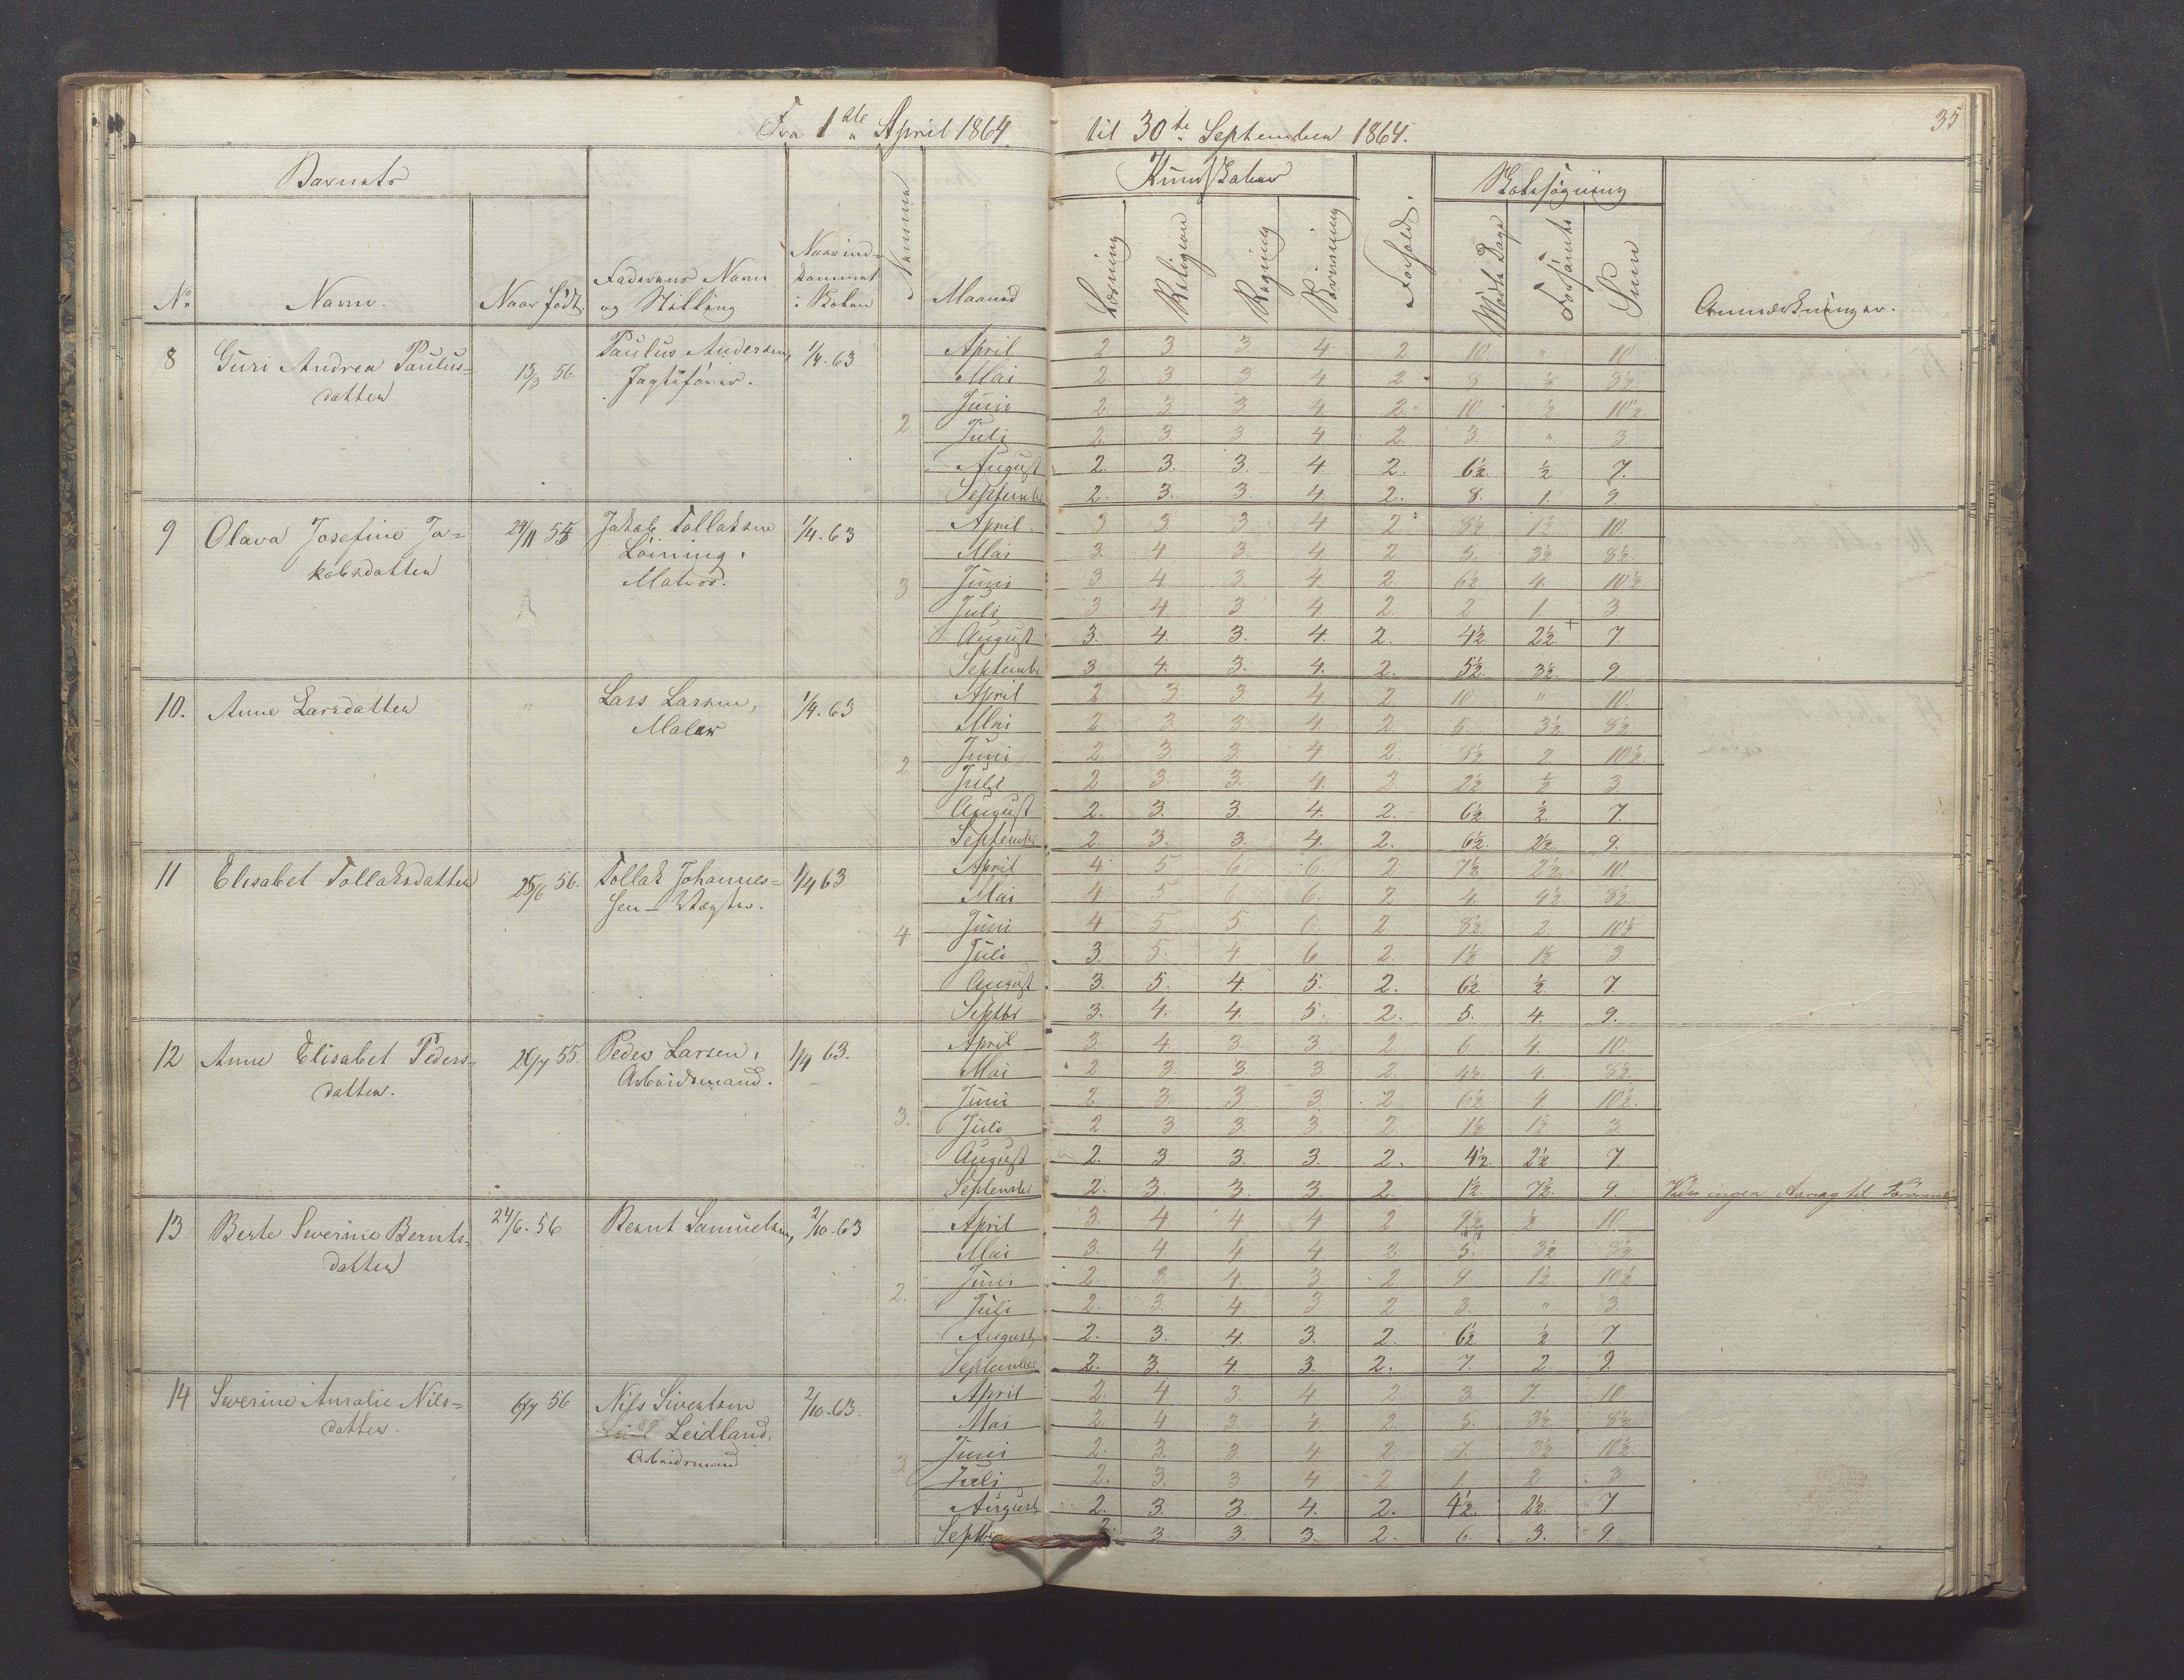 Fra 1ste April 1864. til 30te September 1864.
35
Barnets
Kundskaber
Skolesøgning
No
Navn.
Naar født.
Faderens Navn og Stilling
Naar ind=
kommet
i Skolen
Nummer
Maaned
Læsning
Religion
Regning
Skrivning
Forhold.
Mødte Dage
Forsømte
Sum
Anmærkninger.
8 Guri Andrea Paulus= 13/3 56. Paulus Andersen, 1/4. 63
datter Jagtefører.
2.
April 2 3 3 4 2. 10. " 10
Mai 2 3 3 4 2. 8 ½ 8½
Juni 2 3 3 4 2. 10 ½ 10½
Juli 2 3. 3. 4 2. 3. " 3.
August 2. 3. 3. 4. 2. 6½. ½. 7.
Septembr 2. 3. 3. 4. 2. 8. 1. 9
9 Olava Josefine Ja= 24/11 55 Jakob Tollaksen 1/4. 63
kobsdatter Löining,
Matros.
3
April 3 3 3 4 2 8½ 1½ 10.
Mai 3. 4 3. 4 2 5. 3½ 8½.
Juni 3 4 3. 4 2. 6½ 4. 10½
Juli 3 4. 3 4. 2. 2. 1. 3.
August 3. 4. 3. 4. 2. 4½. 2½. + 7.
Septembr 3. 4. 3. 4. 2. 5½ 3½ 9
10. Anne Larsdatter " Lars Larsen, 1/4. 63
Maler
2
April 2 3 3 4 2 10. " 10.
Mai 2. 3 3 4 2 5 3½ 8½
Juni 2 3 3. 4 2. 8½ 2 10½
Juli 2 3. 3. 4. 2 2½ ½ 3
August 2. 3. 3. 4. 2. 6½. ½. 7.
Septembr 2. 3. 3. 4. 2. 6½. 2½. 9.
11 Elisabet Tollaksdatter 25/6 56. Tollak Johannes= 1/4 63
sen -
4
April 4 5 6 6 2 7½ 2½ 10
Mai 4 5 6 6 2 4. 4½ 8½.
Juni 4 5 5 6 2 8½ 2 10½
Juli 3. 5. 4 6 2. 1½ 1½ 3
August 3. 5. 4. 5. 2. 6½. ½. 7.
Septbr 3. 4. 4. 5. 2. 5. 4. 9.
12 Anne Elisabet Peders= 28/7 55. Peder Larsen, 1/4 63.
datter. Arbeidsmand.
3.
April 3 4. 3. 3 2 6. 4. 10.
Mai 2 3 3. 3 2 4½. 4. 8½.
Juni 2 3. 3 3. 2 6½ 4. 10½.
Juli 2 3 3. 3. 2. 1½ 1½ 3
August 2. 3 3. 3. 2. 4½. 2½ 7.
September 2. 3. 3. 3. 2. 1½. 7½. 9.
13 Berte Severine Bernts= 24/6. 56 Bernt Samuelsen, 2/10. 63
datter
2.
April 3. 4 4 4 2 9½ ½ 10
Mai 3. 4. 4. 4 2. 5. 3½ 8½
Juni 2 3. 4 3 2 9 1½ 10½
Juli 2. 3. 4. 3 2 3. " 3.
August 2. 3. 4. 3. 2. 6½ ½ 7
September 2. 3. 4. 3. 2. 7. 2. 9.
14 Severine Amalie Nils= 6/7 56 Nils Sivertsen 2/10. 63.
datter. Leidland,
Arbeidsmand
3
April 2. 4. 3. 4 2 3. 7. 10.
Mai 2. 4 3. 4. 2. 5. 3½ 8½
Juni 2. 3. 3 4. 2. 7. 3½ 10½
Juli 2. 3. 3 4 2 1. 2 3
August 2. 3. 3. 4. 2. 4½. 2½. 7.
Septbr 2. 3 3. 3. 2. 6. 3. 9.